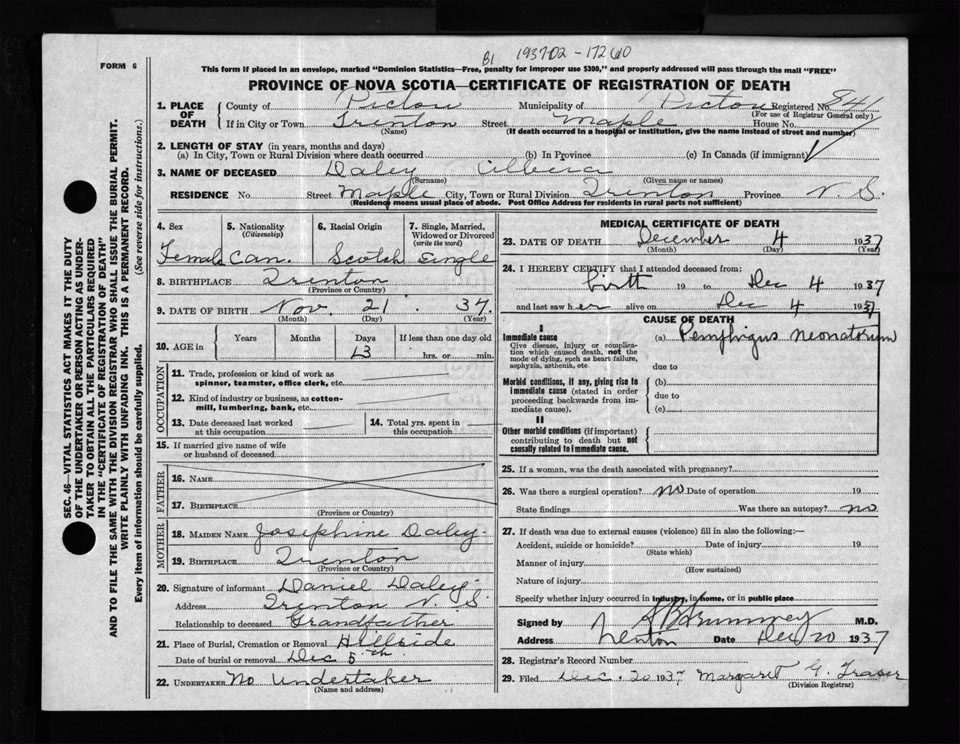 B1 1937-02-17260
FORM 6
This form if placed in an envelope, marked "Dominion Statistics—Free, penalty for improper use $300," and properly addressed will pass through the mail "FREE"
PROVINCE OF NOVA SCOTIA—CERTIFICATE OF REGISTRATION OF DEATH
1. PLACE OF DEATH County of Pictou Municipality of Pictou Registered No. 841
(For use of Registrar General only)
If in City or Town Trenton Street Maple House No.
(Name) (If death occurred in a hospital or institution, give the name instead of street and number)
2. LENGTH OF STAY (in years, months and days)
(a) In City, Town or Rural Division where death occurred (b) In Province (c) In Canada (if immigrant)
3. NAME OF DECEASED Daley
(Surname) (Given name or names)
RESIDENCE No. Street Maple City, Town or Rural Division Trenton Province N. S.
(Residence means usual place of abode. Post Office Address for residents in rural parts not sufficient)
4. Sex 5. Nationality (Citizenship) 6. Racial Origin 7. Single, Married, Widowed or Divorced (write the word)
Female Can. Scotch Single
8. BIRTHPLACE Trenton
(Province or Country)
9. DATE OF BIRTH Nov. 21. 37.
(Month) (Day) (Year)
10. AGE in Years Months Days If less than one day old
13 hrs. or min.
OCCUPATION
11. Trade, profession or kind of work as spinner, teamster, office clerk, etc.
12. Kind of industry or business, as cotton-mill, lumbering, bank, etc.
13. Date deceased last worked at this occupation 14. Total yrs. spent in this occupation
15. If married give name of wife or husband of deceased
FATHER
16. Name
17. Birthplace
(Province or Country)
MOTHER
18. Maiden Name Josephine Daley.
19. Birthplace Trenton
(Province or Country)
20. Signature of informant Daniel Daley.
Address Trenton N. S.
Relationship to deceased Grandfather
21. Place of Burial, Cremation or Removal Hillside
Date of burial or removal Dec 5th
22. Undertaker No Undertaker
(Name and address)
MEDICAL CERTIFICATE OF DEATH
23. DATE OF DEATH December 4 1937
(Month) (Day) (Year)
24. I HEREBY CERTIFY that I attended deceased from:
birth 19 to Dec 4 1937
and last saw her alive on Dec 4 1937
CAUSE OF DEATH
I
Immediate cause (a) Pemphigus neonatorum
Give disease, injury or complication which caused death, not the mode of dying, such as heart failure, asphyxia, asthenia, etc.
due to
Morbid conditions, if any, giving rise to immediate cause (stated in order proceeding backwards from immediate cause).
(b)
due to
(c)
II
Other morbid conditions (if important) contributing to death but not causally related to immediate cause.
25. If a woman, was the death associated with pregnancy?
26. Was there a surgical operation? no Date of operation 19
State findings Was there an autopsy? no
27. If death was due to external causes (violence) fill in also the following:—
Accident, suicide or homicide? Date of injury 19
(State which)
Manner of injury
(How sustained)
Nature of injury
Specify whether injury occurred in industry, in home, or in public place
Signed by M.D.
Address Trenton Date Dec 20 1937
28. Registrar's Record Number
29. Filed Dec. 20 1937 Margaret G. Fraser
(Division Registrar)
SEC. 46—VITAL STATISTICS ACT MAKES IT THE DUTY
OF THE UNDERTAKER OR PERSON ACTING AS UNDER-
TAKER TO OBTAIN ALL THE PARTICULARS REQUIRED
IN THE "CERTIFICATE OF REGISTRATION OF DEATH"
AND TO FILE THE SAME WITH THE DIVISION REGISTRAR WHO SHALL ISSUE THE BURIAL PERMIT.
WRITE PLAINLY WITH UNFADING INK. THIS IS A PERMANENT RECORD.
Every item of information should be carefully supplied. (See reverse side for instructions.)